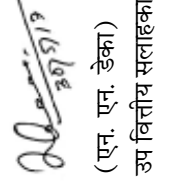 30/5/13
(एन. एन. डेका)
उप वित्तीय सलाहका